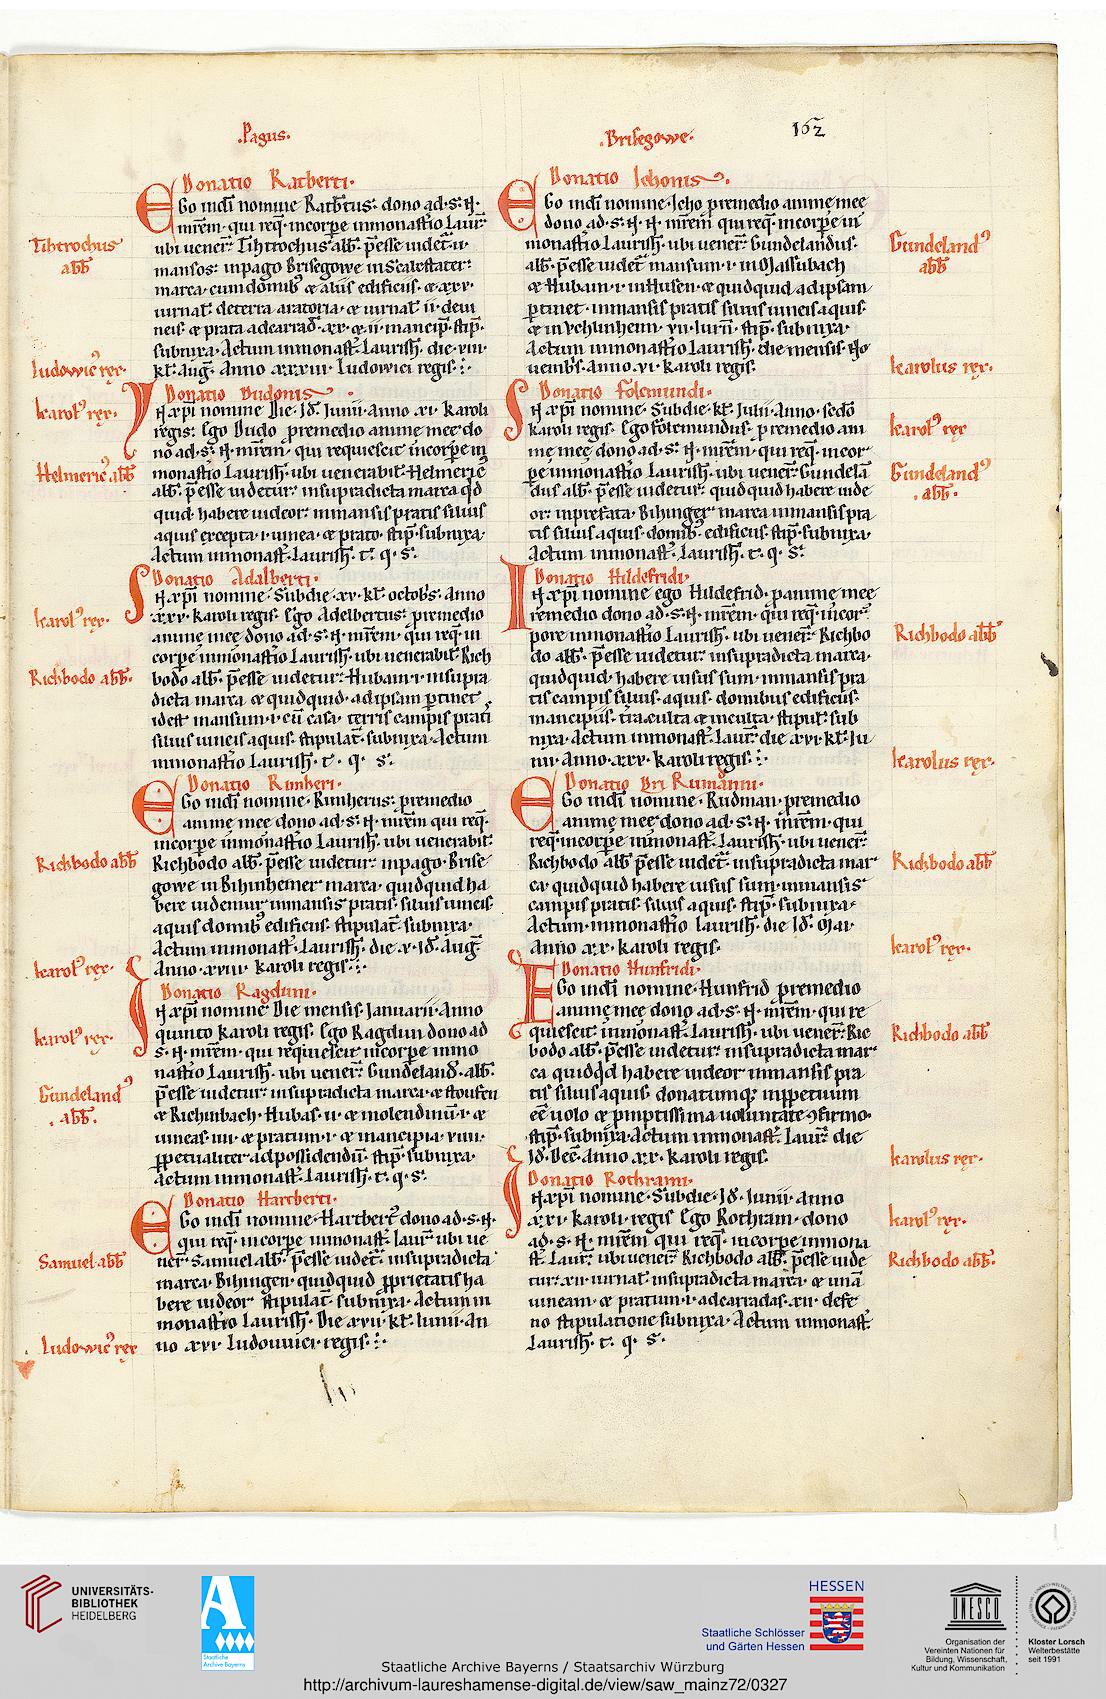 .Pagus.
.Brisegowe.
162
Donatio Ratberti.
EGo in dī nomine Ratb̄tus. dono ad .s. N.
mr̄em. qui req̄. in corpe in monastio Laur̄.
ubi ueneꝛ. Tihtrochus abb̄. p̄esse uidet̄. ii.
mansos. in pago Brisegowe in Scalestater
marca. cum domib⁹ & aliis edificiis & xxv.
iurnal̄. de terra aratoria & iurnal̄. ii. de ui
neis & prata ad carrad̄. xv. & ii. mancip̄. stip̄.
subnixa. Actum in monast̄. Laurish̄. die. viii.
kl̄. Aug̅. Anno xxxiii. Ludowici regis.
Tihtrochus
abb̄
Ludowic⁹ rex.
Donatio Dudonis.
IN xp̄i nomine Die. Id̄. Junii. Anno xi. karoli
regis. Ego Dudo premedio anime mee do
no ad .s. N. mr̄em. qui requiescit in corpe in
monastio Laurish̄. ubi uenerabil̄. Helmeric⁹
abb̄. p̄esse uidetur. in supradicta marca qd̄
quid habere uideor. in mansis pratis siluis
aquis excepta .i. uinea. & prato. stip̄. subnixa.
Actum in monast̄. Laurish̄. t. q. s.
karol⁹ rex.
Helmeric⁹ abb̄
Donatio Adalberti.
IN xp̄i nomine. Sub die .xv. kl̄. octob̄s. Anno
xxv. karoli regis. Ego Adelbertus. premedio
anime mee dono ad .s. N. mr̄em. qui req̄. in
corpe in monastio Laurish̄. ubi uenerabil̄. Rich
bodo abb̄. p̄esse uidetur. Hubam .i. in supra
dicta marca & quidquid ad ipsam p̄tinet
id est mansum .i. cū casa. terris campis prati
siluis uineis aquis. stipulat̄. subnixa. Actum
in monastio Laurish̄. t. q. s.
karol⁹ rex.
Richbodo abb̄.
Donatio Rinheri.
EGo in dī nomine. Rinherus. premedio
anime mee dono ad .s. N. mr̄em qui req̄.
in corpe in monastio Laurish̄. ubi uenerabil̄.
Richbodo abb̄. p̄esse uidetur. in pago Brise
gowe in Bihinhemer marca. quidquid ha
bere uidemur in mansis pratis. siluis uineis.
aquis domib⁹ edificiis. stipulat̄. subnixa.
Actum in monast̄. Laurish̄. die .x. Id̄. Aug̅.
Anno xviii. karoli regis.
Richbodo abb̄
karol⁹ rex.
Donatio Ragduni.
IN xp̄i nomine Die mensis Januarii. Anno
quinto karoli regis. Ego Ragdun dono ad
s. N. mr̄em. qui requiescit in corpe in mo
nastio Laurish̄. ubi ueneꝛ. Gundeland⁹. abb̄.
p̄esse uidetur. in supradicta marca. & stoufen
& Richinbach. Hubas .ii. & molendinū .i. &
uineas .iiii. & pratum .i. & mancipia. viiii.
ꝑpetualiter ad possidendū. stip̄. subnixa.
Actum in monast̄. Laurish̄. t. q. s.
karol⁹ rex.
Gundeland⁹
.abb̄.
Donatio Hartberti.
EGo in dī nomine. Hartbert⁹ dono ad .s. N.
qui req̄. in corpe in monast̄. laur̄. ubi ue
neꝛ. Samuel abb̄. p̄esse uidet̄. in supradicta
marca. Bihingen. quidquid ꝓprietatis ha
bere uideor. stipulat̄. subnixa. Actum in
monastio Laurish̄. Die xvii. kl̄. Iunii. An
no xvi. Ludouuici regis.
Samuel abb̄
Ludowic⁹ rex
Donatio Ichonis.
EGo in dī nomine. Icho premedio anime mee
dono ad .s. N. mr̄em qui req̄. in corpe in
monastio Laurish̄. ubi ueneꝛ. Gundelandus.
abb̄. p̄esse uidet̄. mansum .i. in Massubach
& Hubam .i. in Husen. & quidquid ad ipsam
p̄tinet. in mansis pratis siluis uineis aquis.
& in Vchlinheim. vii. Iurn̄. stip̄. subnixa.
Actum in monastio Laurish̄. die mensis. No
uemb̄s. Anno vi. karoli regis.
Gundeland⁹
abb̄
karolus rex.
Donatio Folcmundi.
IN xp̄i nomine. Sub die kl̄. Julii. Anno. secdo
karoli regis. Ego Folcmundus. premedio ani
me mee dono ad .s. N. mr̄em. qui req̄. incor
pe in monastio Laurish̄. ubi ueneꝛ. Gundelā
dus abb̄. p̄esse uidetur. quidquid habere uide
or. in prefata. Bihinger marca in mansis pra
tis siluis aquis. domib⁹. edificiis. stip̄. subnixa.
Actum in monast̄. Laurish̄. t. q. s.
karol⁹ rex
Gundeland⁹
.abb̄.
Donatio Hildefridi.
IN xp̄i nomine ego Hildefrid. p anime mee
remedio dono ad .s. N. mr̄em. qui req̄. in cor
pore in monastio Laurish̄. ubi ueneꝛ. Richbo
do abb̄. p̄esse uidetur. in supradicta marca.
quidquid habere uisus sum. in mansis pra
tis campis siluis. aquis. domibus edificiis.
mancipiis. tr̄a culta & inculta. stipul̄. sub
nixa. Actum in monast̄. Laur̄. die xvi. kl̄. Ju
nii. Anno. xxv. karoli regis.
Richbodo abb̄
karolus rex.
Donatio Vri Rumanni.
EGo in dī nomine. Rudman. premedio
anime mee dono ad .s. N. mr̄em. qui
req̄. in corpe in monast̄. Laurish̄. ubi ueneꝛ.
Richbodo abb̄ p̄esse uidet̄. in supradicta mar
ca. quidquid habere uisus sum. in mansis
campis pratis. siluis aquis. stip̄. subnixa.
Actum. in monastio Laurish̄. die Id̄. Mar.
Anno xx. karoli regis.
Richbodo abb̄
karol⁹ rex.
Donatio Hunfridi.
EGo in dī nomine. Hunfrid premedio
anime mee dono ad .s. N. mr̄em. qui re
quiescit in monast̄. Laurish̄. ubi ueneꝛ. Ric
bodo abb̄. p̄esse uidetur. in supradicta mar
ca quidqd̄ habere uideor in mansis pra
tis siluis aquis donatumq; inppetuum
eē uolo & pmptissima uoluntate ꝯfirmo.
stip̄. subnixa. Actum in monast̄. Laur̄. die
Id̄. Dec̄. Anno xx. karoli regis.
Richbodo abb̄
karolus rex.
Donatio Rothrami.
IN xp̄i nomine. Sub die. Id̄. Iunii. Anno
xxi. karoli. regis Ego Rothram. dono
ad .s. N. mr̄em qui req̄. in corpe in mona
st̄. Laur̄. ubi ueneꝛ. Richbodo abb̄. p̄esse uide
tur. xii. iurnal̄. in supradicta marca. & unā
uineam. & pratum .i. ad carradas .xii. defe
no stipulatione subnixa. Actum in monast̄.
Laurish̄. t. q. s.
karol⁹ rex.
Richbodo abb̄.
UNIVERSITÄTS-
BIBLIOTHEK
HEIDELBERG
Staatliche
Archive Bayerns
HESSEN
Staatliche Schlösser
und Gärten Hessen
UNESCO
Organisation der
Vereinten Nationen für
Bildung, Wissenschaft,
Kultur und Kommunikation
Kloster Lorsch
Welterbestätte
seit 1991
Staatliche Archive Bayerns / Staatsarchiv Würzburg
http://archivum-laureshamense-digital.de/view/saw_mainz72/0327